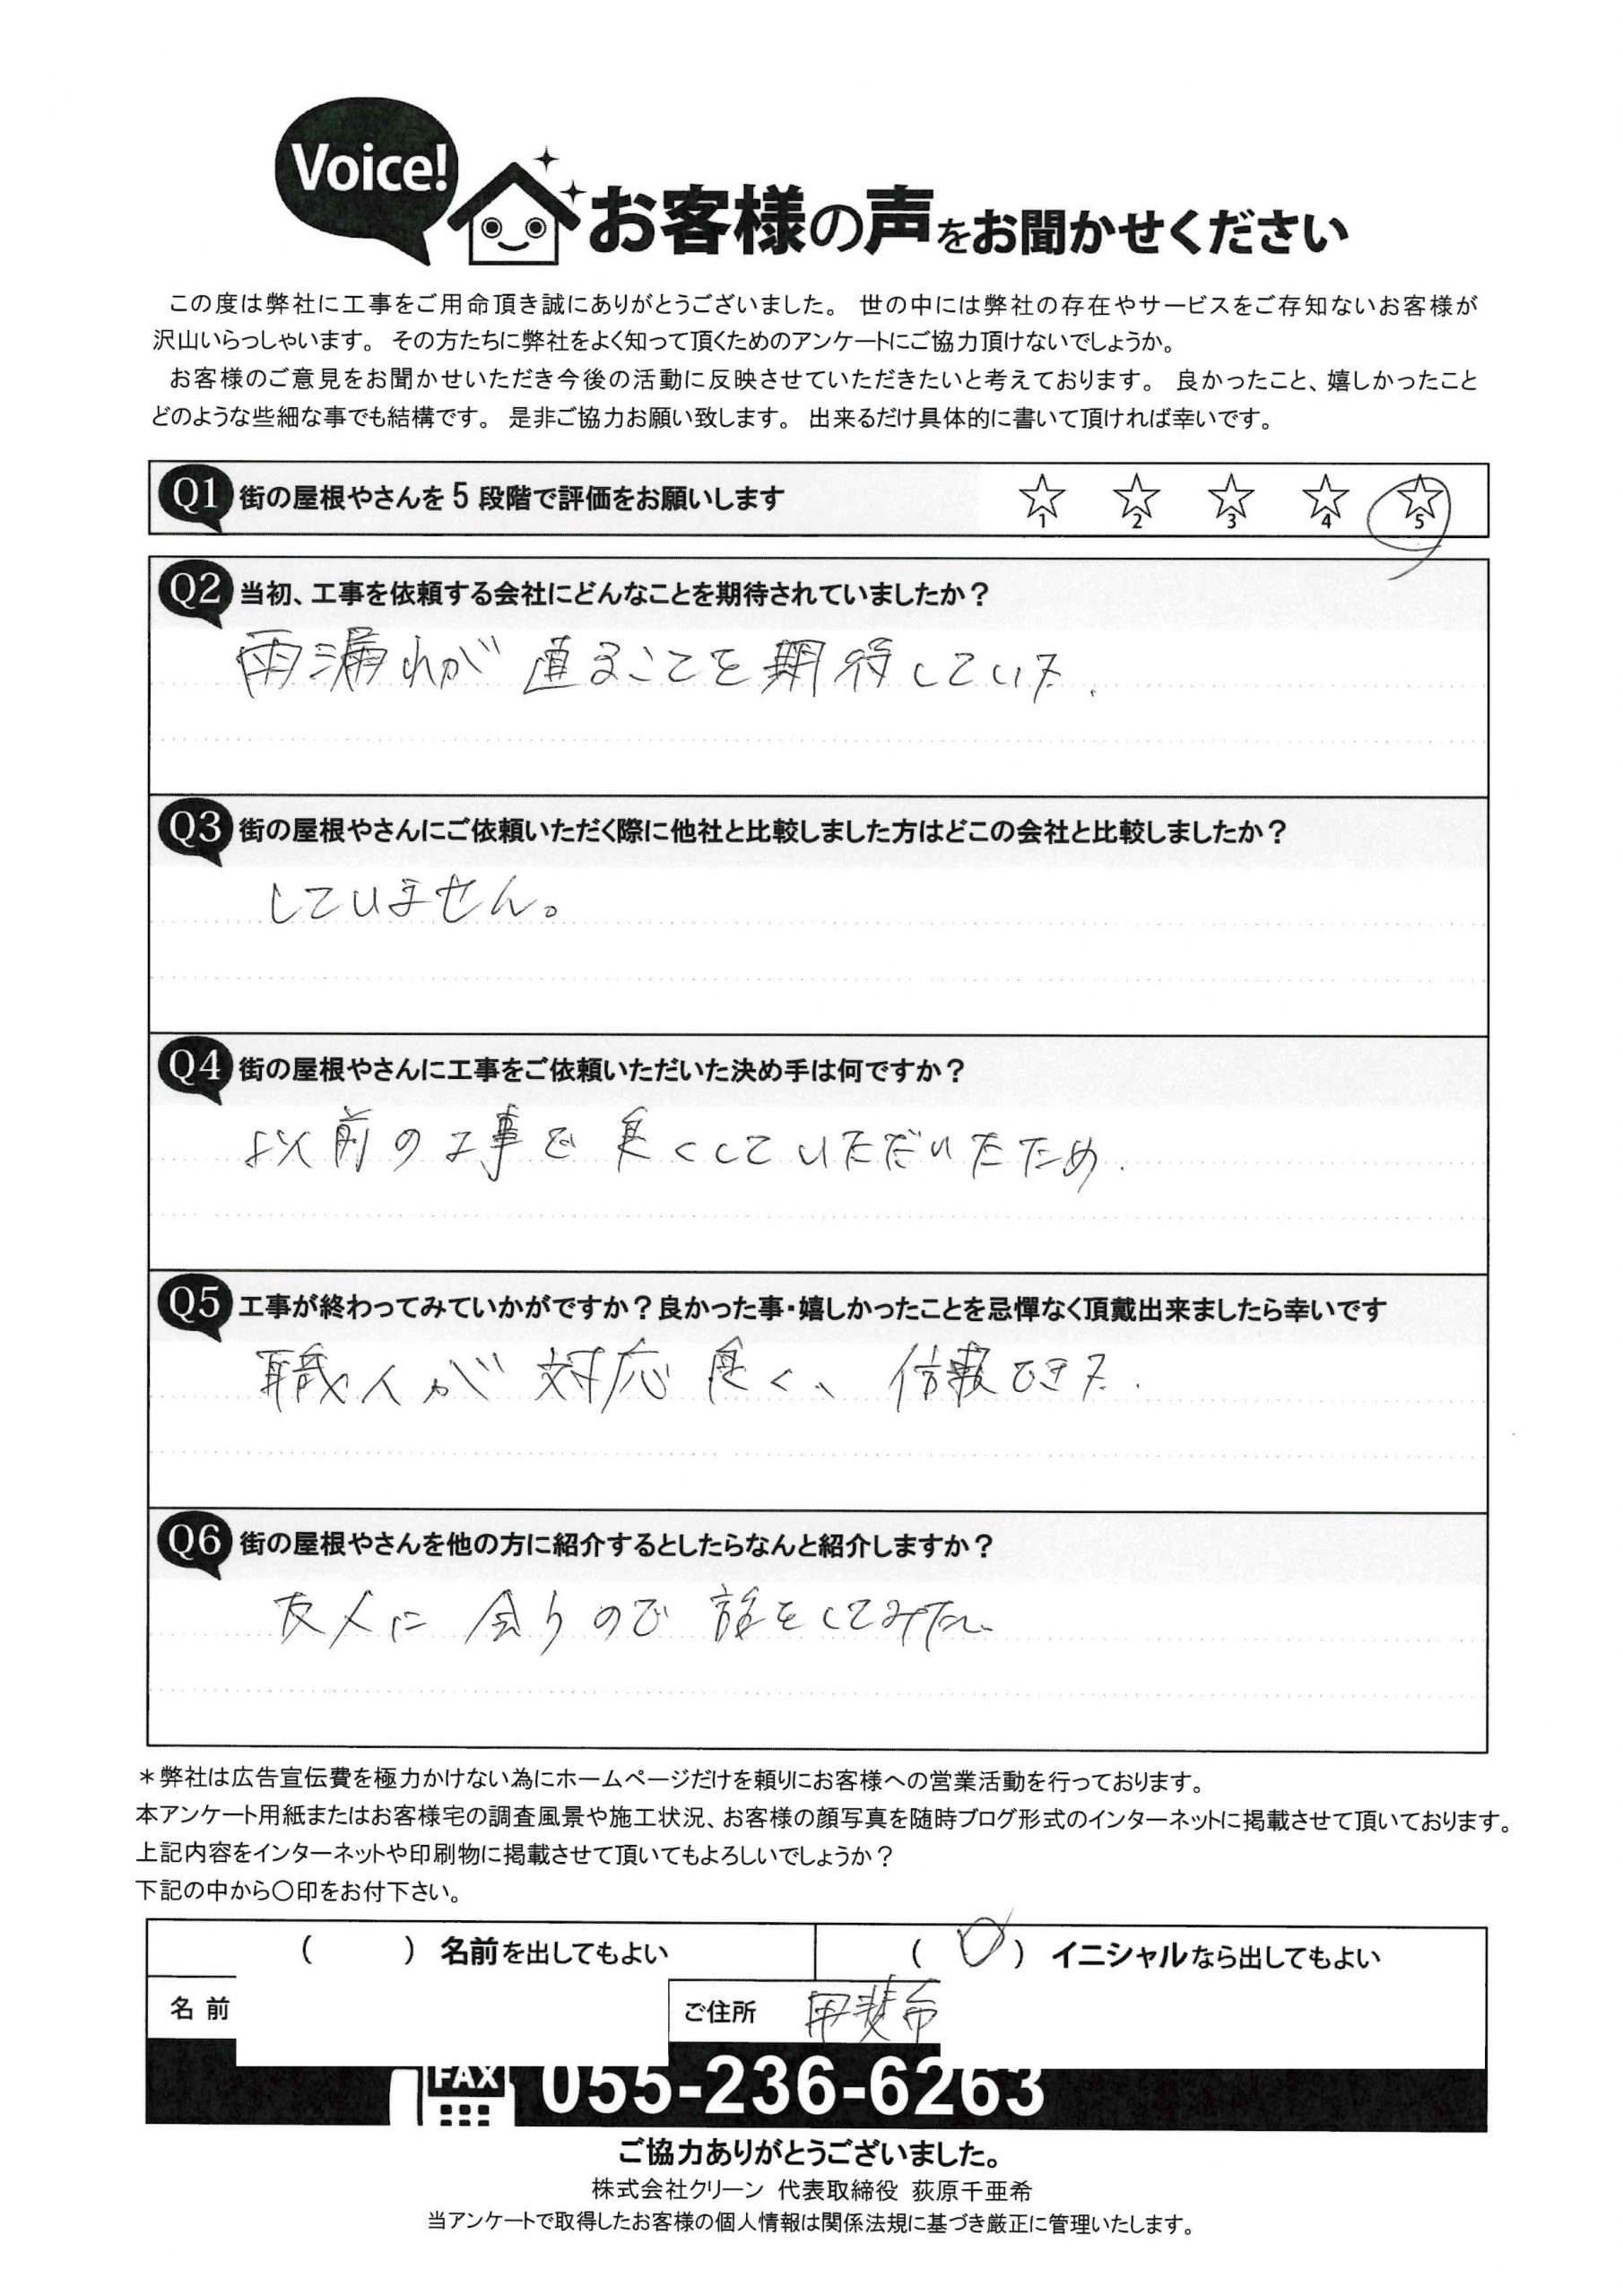 Voice!
お客様の声をお聞かせください
この度は弊社に工事をご用命頂き誠にありがとうございました。 世の中には弊社の存在やサービスをご存知ないお客様が
沢山いらっしゃいます。 その方たちに弊社をよく知って頂くためのアンケートにご協力頂けないでしょうか。
お客様のご意見をお聞かせいただき今後の活動に反映させていただきたいと考えております。 良かったこと、嬉しかったこと
どのような些細な事でも結構です。 是非ご協力お願い致します。 出来るだけ具体的に書いて頂ければ幸いです。
Q1 街の屋根やさんを5段階で評価をお願いします ☆1 ☆2 ☆3 ☆4 ☆5
Q2 当初、工事を依頼する会社にどんなことを期待されていましたか？
雨漏れが直ることを期待していた.
Q3 街の屋根やさんにご依頼いただく際に他社と比較しました方はどこの会社と比較しましたか？
していません。
Q4 街の屋根やさんに工事をご依頼いただいた決め手は何ですか？
以前の工事で良くしていただいたため.
Q5 工事が終わってみていかがですか？良かった事・嬉しかったことを忌憚なく頂戴出来ましたら幸いです
職人が対応良く、信頼できた.
Q6 街の屋根やさんを他の方に紹介するとしたらなんと紹介しますか？
友人に会うので話をしてみたい
＊弊社は広告宣伝費を極力かけない為にホームページだけを頼りにお客様への営業活動を行っております。
本アンケート用紙またはお客様宅の調査風景や施工状況、お客様の顔写真を随時ブログ形式のインターネットに掲載させて頂いております。
上記内容をインターネットや印刷物に掲載させて頂いてもよろしいでしょうか？
下記の中から〇印をお付下さい。
( ) 名前を出してもよい (〇) イニシャルなら出してもよい
名 前 ご住所 甲斐市
FAX 055-236-6263
ご協力ありがとうございました。
株式会社クリーン 代表取締役 荻原千亜希
当アンケートで取得したお客様の個人情報は関係法規に基づき厳正に管理いたします。